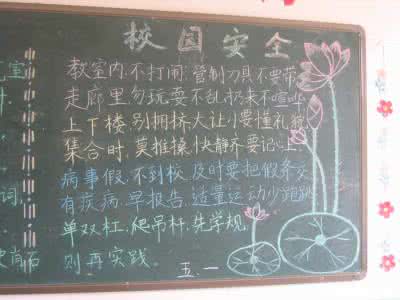 校园安全
教室内,不打闹,管制刀具不要带
走廊里勿玩耍不乱扔来不喧哗
上下楼,别拥挤大让小要懂礼貌
集合时,莫推搡,快静齐要记心上
病事假,不到校,及时要把假条交
有疾病,早报告,适量运动少跑跳
单双杠,爬吊杆,先学规
则再实践.
五.一
室
词,
有后